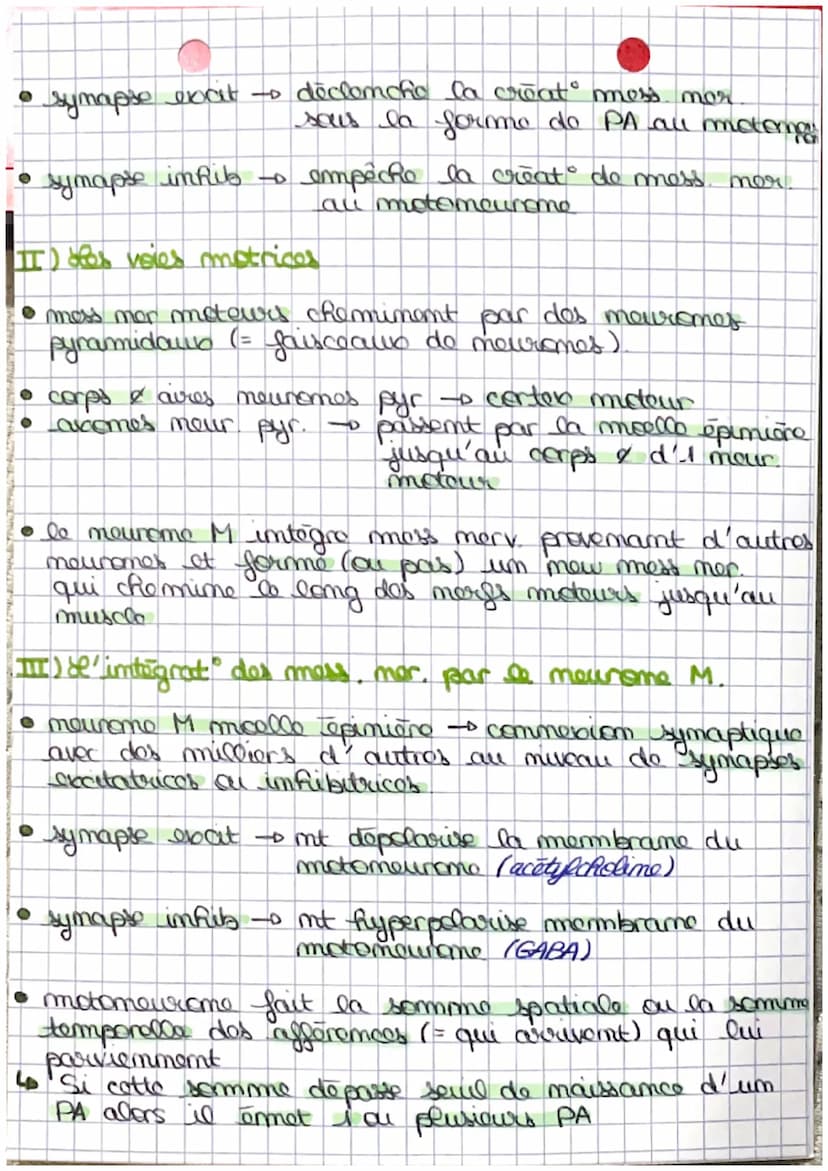 • synapse excit → déclenche la créat° mess. ner.
sous la forme de PA au motoneu
• synapse inhib → empêche la créat° de mess. ner.
au motoneurone
II) Les voies motrices
• mess ner moteurs cheminent par des neurones
pyramidaux (= faisceaux de neurones).
• corps ¢ aires neurones pyr → cortex moteur
• axones neur. pyr. → passent par la moelle épinière
jusqu'au corps ¢ d'1 neur.
moteur
• le neurone M intègre mess nerv. provenant d'autres
neurones et forme (ou pas) un nouv mess ner.
qui chemine le long des nerfs moteurs jusqu'au
muscle
III) L'intégrat° des mess. ner. par le neurone M.
• neurone M moelle épinière → connexion synaptique
avec des milliers d'autres au niveau de synapses
excitatrices ou inhibitrices
• synapse excit → nt dépolarise la membrane du
motoneurone (acétylcholine)
• synapse inhib → nt hyperpolarise membrane du
motoneurone (GABA)
• motoneurone fait la somme spatiale ou la somme
temporelle des afférences (= qui arrivent) qui lui
parviennent
↳ Si cette somme dépasse seuil de naissance d'un
PA alors il émet 1 ou plusieurs PA